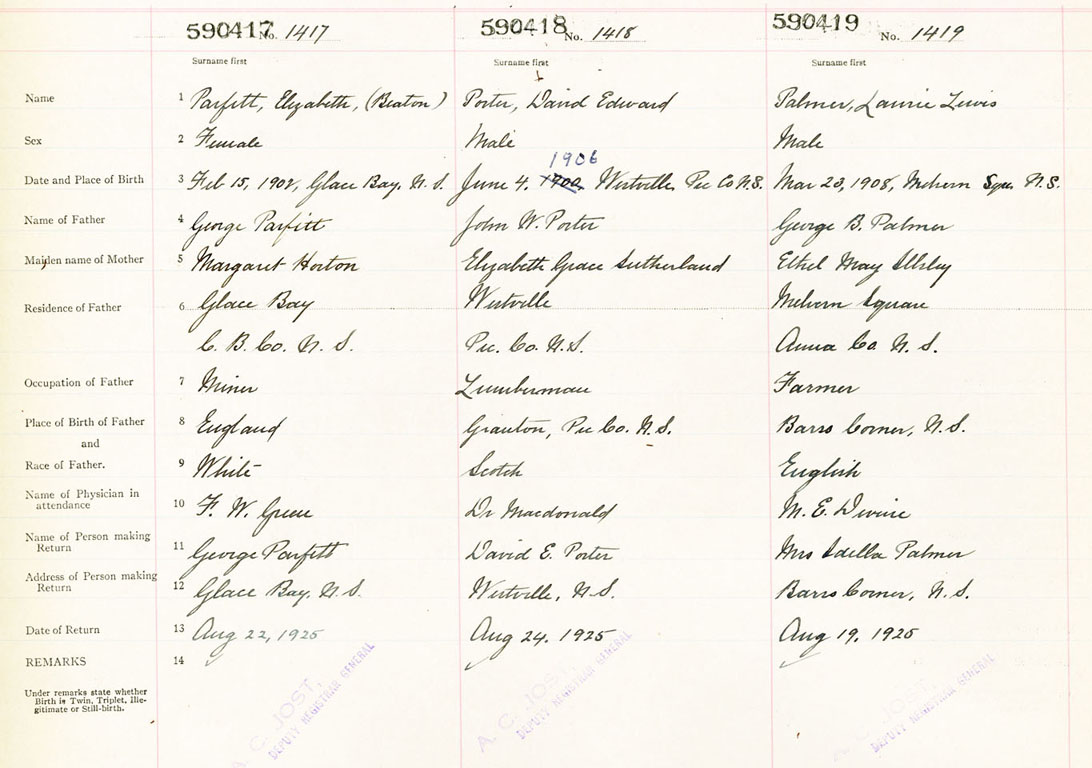 590417 No. 1417 590418 No. 1418 590419 No. 1419
Surname first Surname first Surname first
Name 1 Parfitt, Elizabeth, (Beaton) Porter, David Edward Palmer, Laurie Lewis
Sex 2 Female Male Male
1906
Date and Place of Birth 3 Feb 15, 1902, Glace Bay, N. S. June 4, Westville, Pic Co N.S. Mar 23, 1908, Melvern Sque N.S.
Name of Father 4 George Parfitt John W. Porter George B. Palmer
Maiden name of Mother 5 Margaret Horton Elizabeth Grace Sutherland Ethel May Illsley
Residence of Father 6 Glace Bay Westville Melvern Square
C. B. Co. N. S. Pic. Co. N.S. Anna Co. N. S.
Occupation of Father 7 Miner Lumberman Farmer
Place of Birth of Father 8 England Granton, Pic Co. N.S. Barss Corner, N.S.
and
Race of Father. 9 White Scotch English
Name of Physician in
attendance 10 F. W. Green Dr Macdonald M. E.
Name of Person making
Return 11 George Parfitt David E. Porter Mrs Idella Palmer
Address of Person making
Return 12 Glace Bay, N.S. Westville, N.S. Barss Corner, N.S.
Date of Return 13 Aug 22, 1925 Aug 24, 1925 Aug 19, 1925
REMARKS 14
Under remarks state whether
Birth is Twin, Triplet, Ille-
gitimate or Still-birth.
A. C. JOST, A. C. JOST JOST
DEPUTY REGISTRAR GENERAL DEPUTY REGISTRAR GENERAL DEPUTY REGISTRAR GENERAL